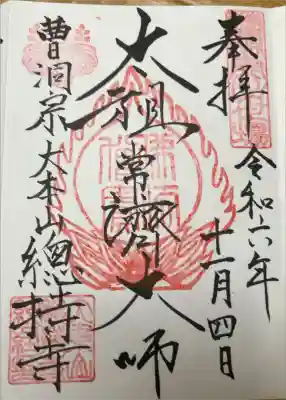 奉拝
令和六年
十一月四日
太祖常濟大师
曹洞宗大本山總持寺